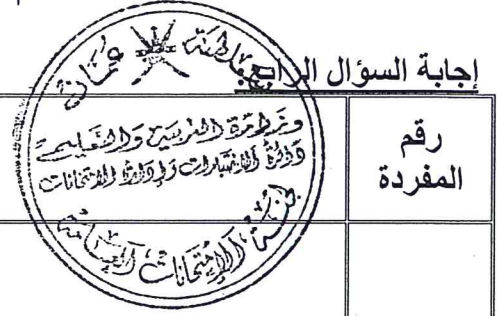 إجابة السؤال الرابع
سلطنة عمان
وزارة التربية والتعليم
دائرة الاختبارات وإدارة الامتحانات
الامتحانات العامة
رقم
المفردة